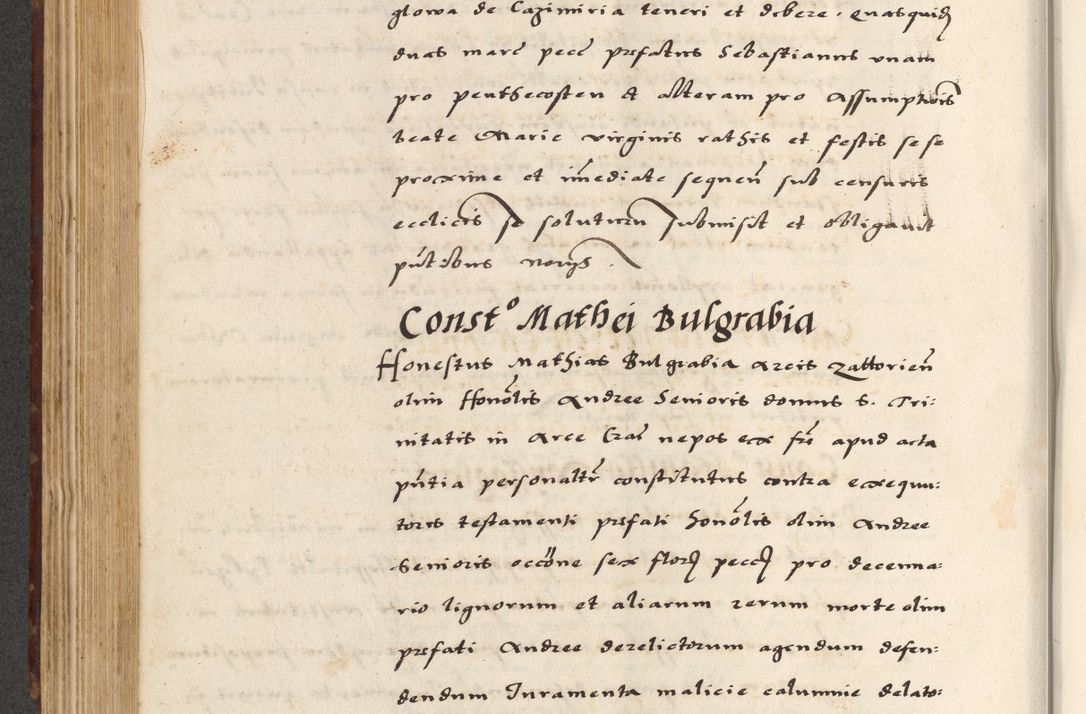 glowa de Cazimiria teneri et debere. Quasquid
duas marc pecc prefatus Sebastianus unam
pro penthecosten & alteram pro Assumptiois
beate Marie virginis rathis et festis se se
proxime et imediate sequen sub censuris
ecclicis se soluturum submisit et obligavit
pntibus
Const° Mathei Bulgrabia
Honestus Mathias Bulgrabia Arcis Zattorien
olim Honolis Andree Senioris domus S. Tri:
nitatis in Arce Crac nepos ex fre apud acta
pntia personaltr constitutus contra exequu:
toris testamenti prefati honolis olim Andree
Senioris occone sex flor pecc pro decenna:
rio lignorum et aliarum rerum morte olim
prefati Andree derelictorum agendum defen:
dendum Juramenta malicie calumnie delato: